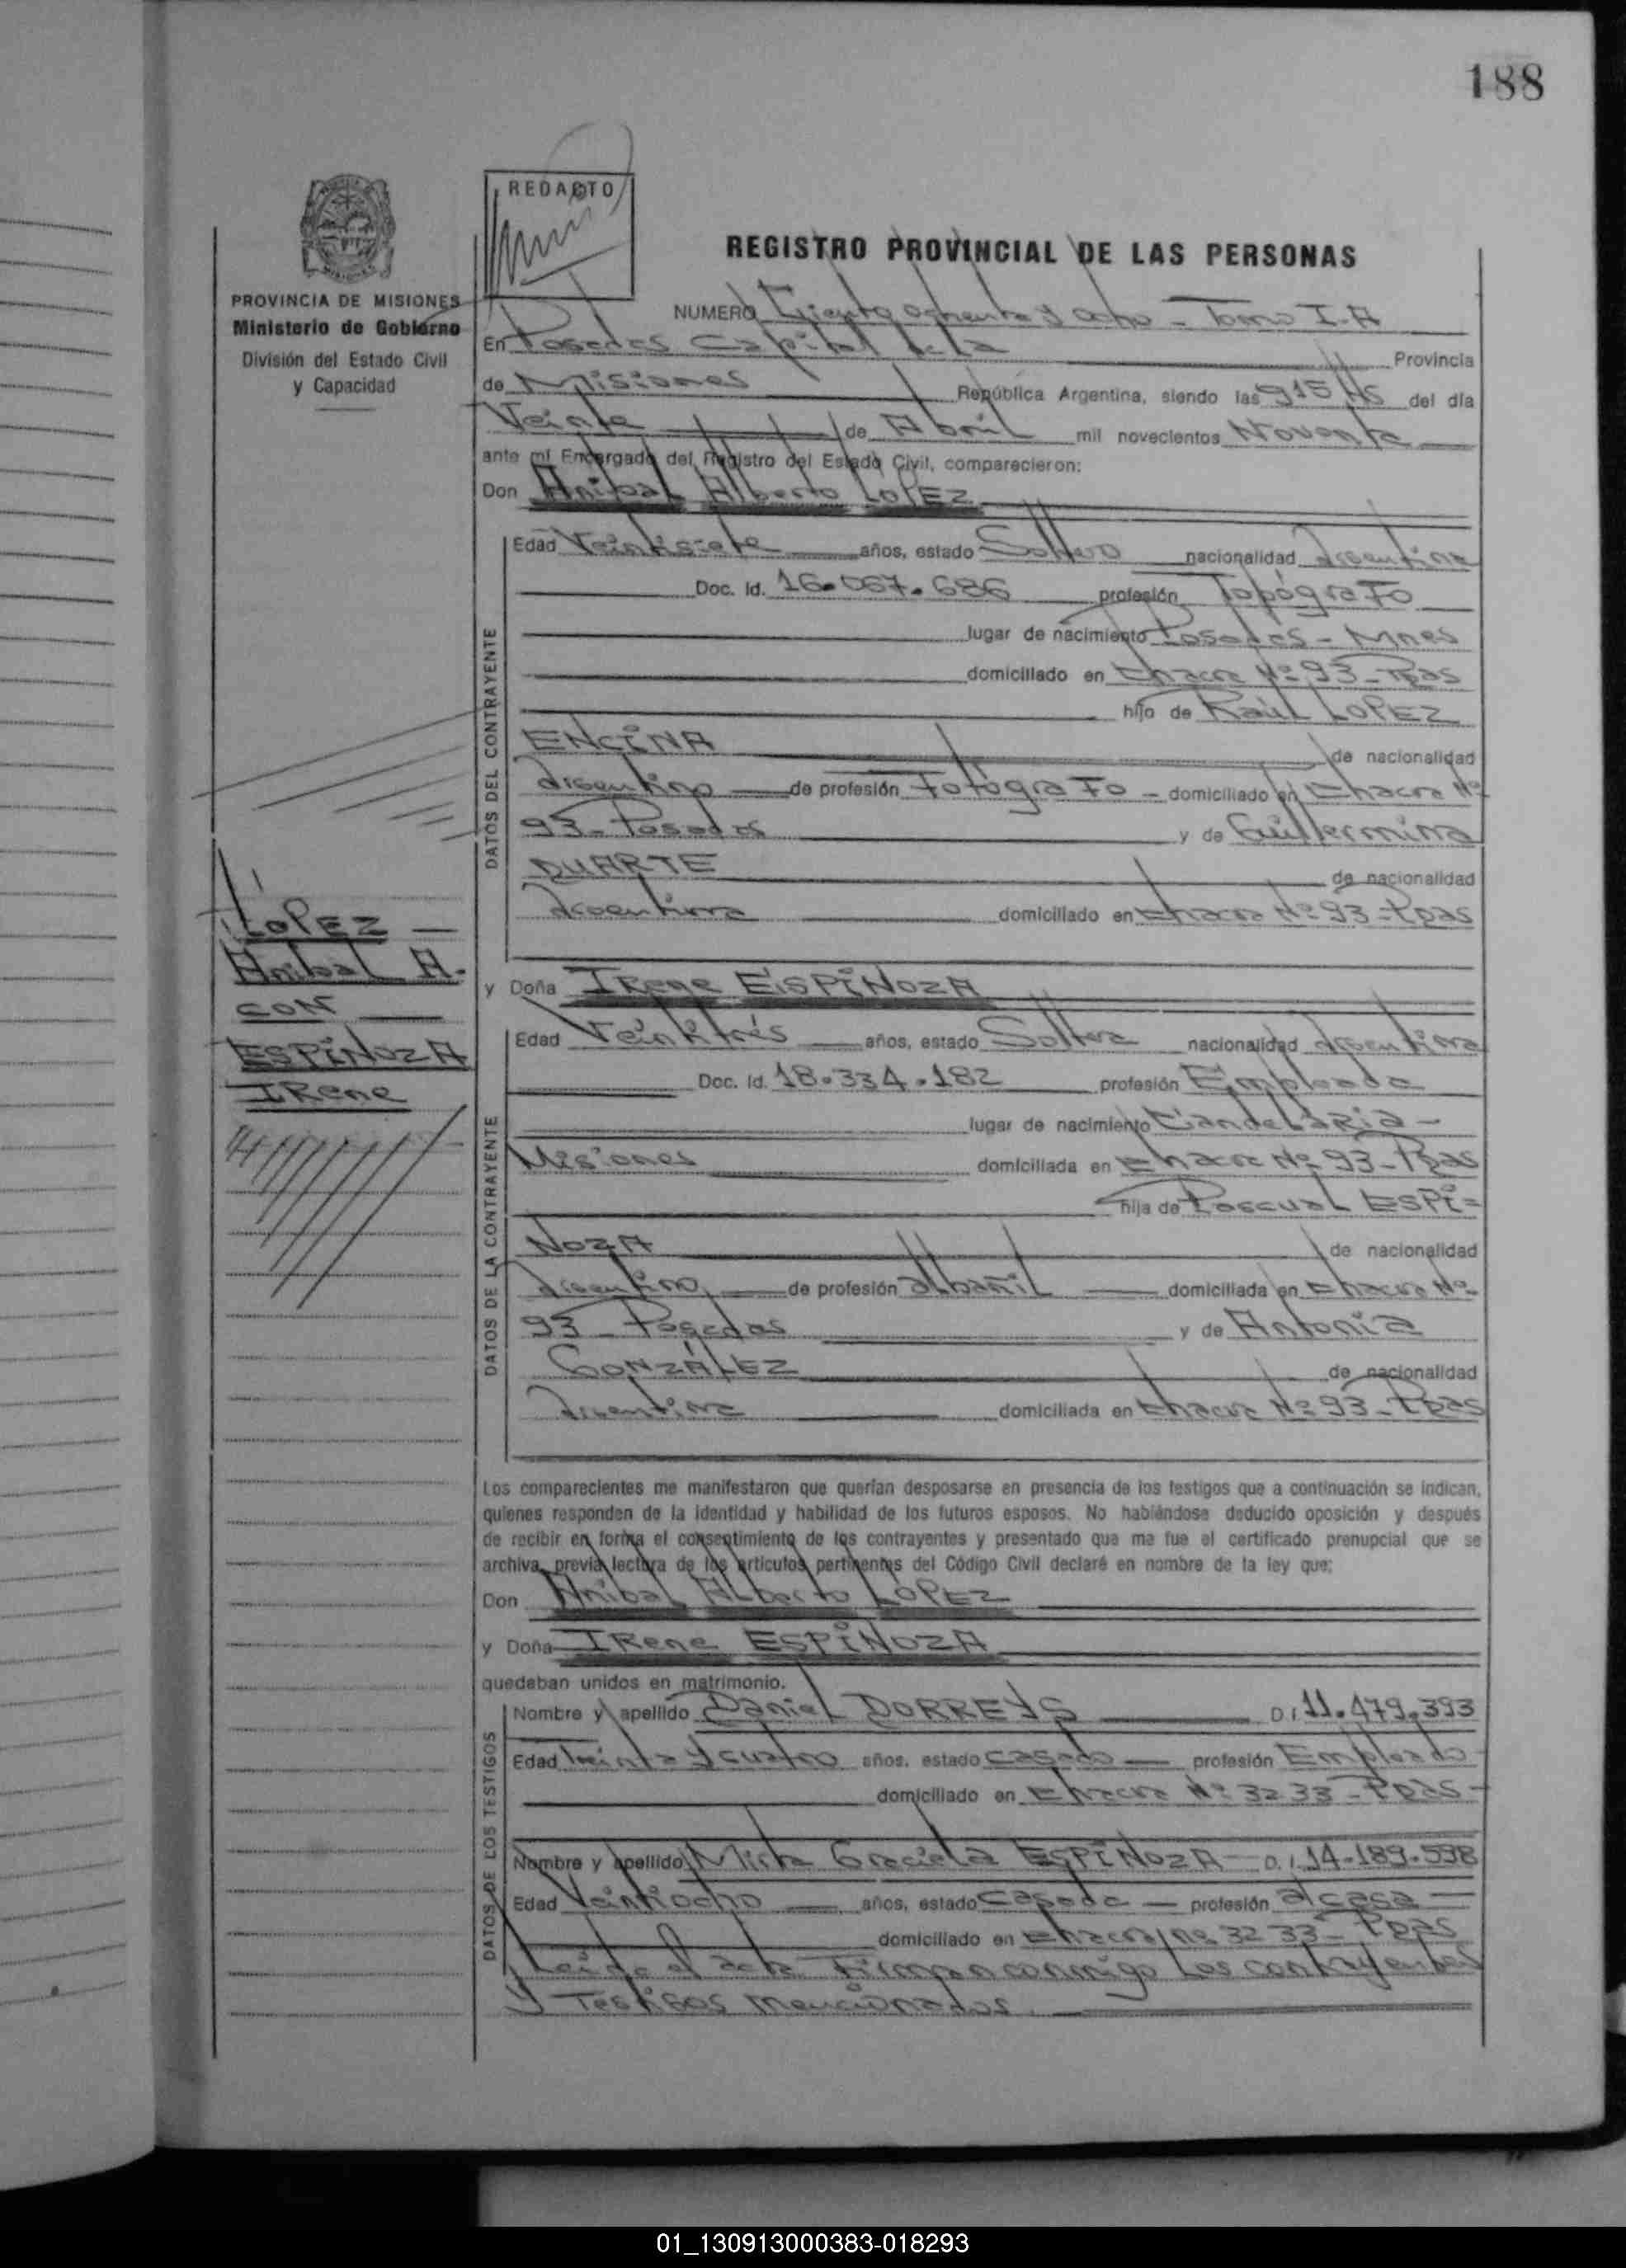 188
REDACTO
REGISTRO PROVINCIAL DE LAS PERSONAS
PROVINCIA DE MISIONES
Ministerio de Gobierno
División del Estado Civil
y Capacidad
NUMERO Ciento ochenta y ocho - Tomo I-A
En Posadas Capital de la Provincia
de Misiones República Argentina, siendo las 915 Hs del día
Veinte de Abril mil novecientos Noventa
ante mi Encargado del Registro del Estado Civil, comparecieron:
Don Anibal Alberto LOPEZ
DATOS DEL CONTRAYENTE
Edad Veintisiete años, estado Soltero nacionalidad Argentina
Doc. Id. 16.067.686 profesión Topógrafo
lugar de nacimiento Posadas - Mnes
domiciliado en Chacra Nº 93 - Pdas
hijo de Raúl LOPEZ
ENCINA de nacionalidad
Argentino de profesión Fotógrafo - domiciliado en Chacra Nº
93 - Posadas y de Guillermina
DUARTE de nacionalidad
Argentina domiciliado en Chacra Nº 93 - Pdas
LOPEZ
Anibal A.
CON
ESPINOZA
Irene
y Doña Irene ESPINOZA
DATOS DE LA CONTRAYENTE
Edad Veintitrés años, estado Soltera nacionalidad Argentina
Doc. Id. 18.334.182 profesión Empleada
lugar de nacimiento Candelaria -
Misiones domiciliada en Chacra Nº 93 - Pdas
hija de Pascual ESPI=
NOZA de nacionalidad
Argentino de profesión albañil domiciliada en Chacra Nº
93 - Posadas y de Antonia
GONZÁLEZ de nacionalidad
Argentina domiciliada en Chacra Nº 93 - Pdas
Los comparecientes me manifestaron que querían desposarse en presencia de los testigos que a continuación se indican,
quienes responden de la identidad y habilidad de los futuros esposos. No habiéndose deducido oposición y después
de recibir en forma el consentimiento de los contrayentes y presentado que me fue el certificado prenupcial que se
archiva, previa lectura de los artículos pertinentes del Código Civil declaré en nombre de la ley que:
Don Anibal Alberto LOPEZ
y Doña Irene ESPINOZA
quedaban unidos en matrimonio.
DATOS DE LOS TESTIGOS
Nombre y apellido Daniel DORREYS D.I 11.479.393
Edad Treinta y cuatro años, estado casado profesión Empleado
domiciliado en Chacra Nº 32 33 - Pdas -
Nombre y apellido Mirta Graciela ESPINOZA - D.I. 14.189.598
Edad Veintiocho años, estado Casada - profesión al casa
domiciliado en Chacra Nº 32 33 - Pdas
Leída el acta Firman conmigo Los contrayentes
y Testigos mencionados.
01_130913000383-018293